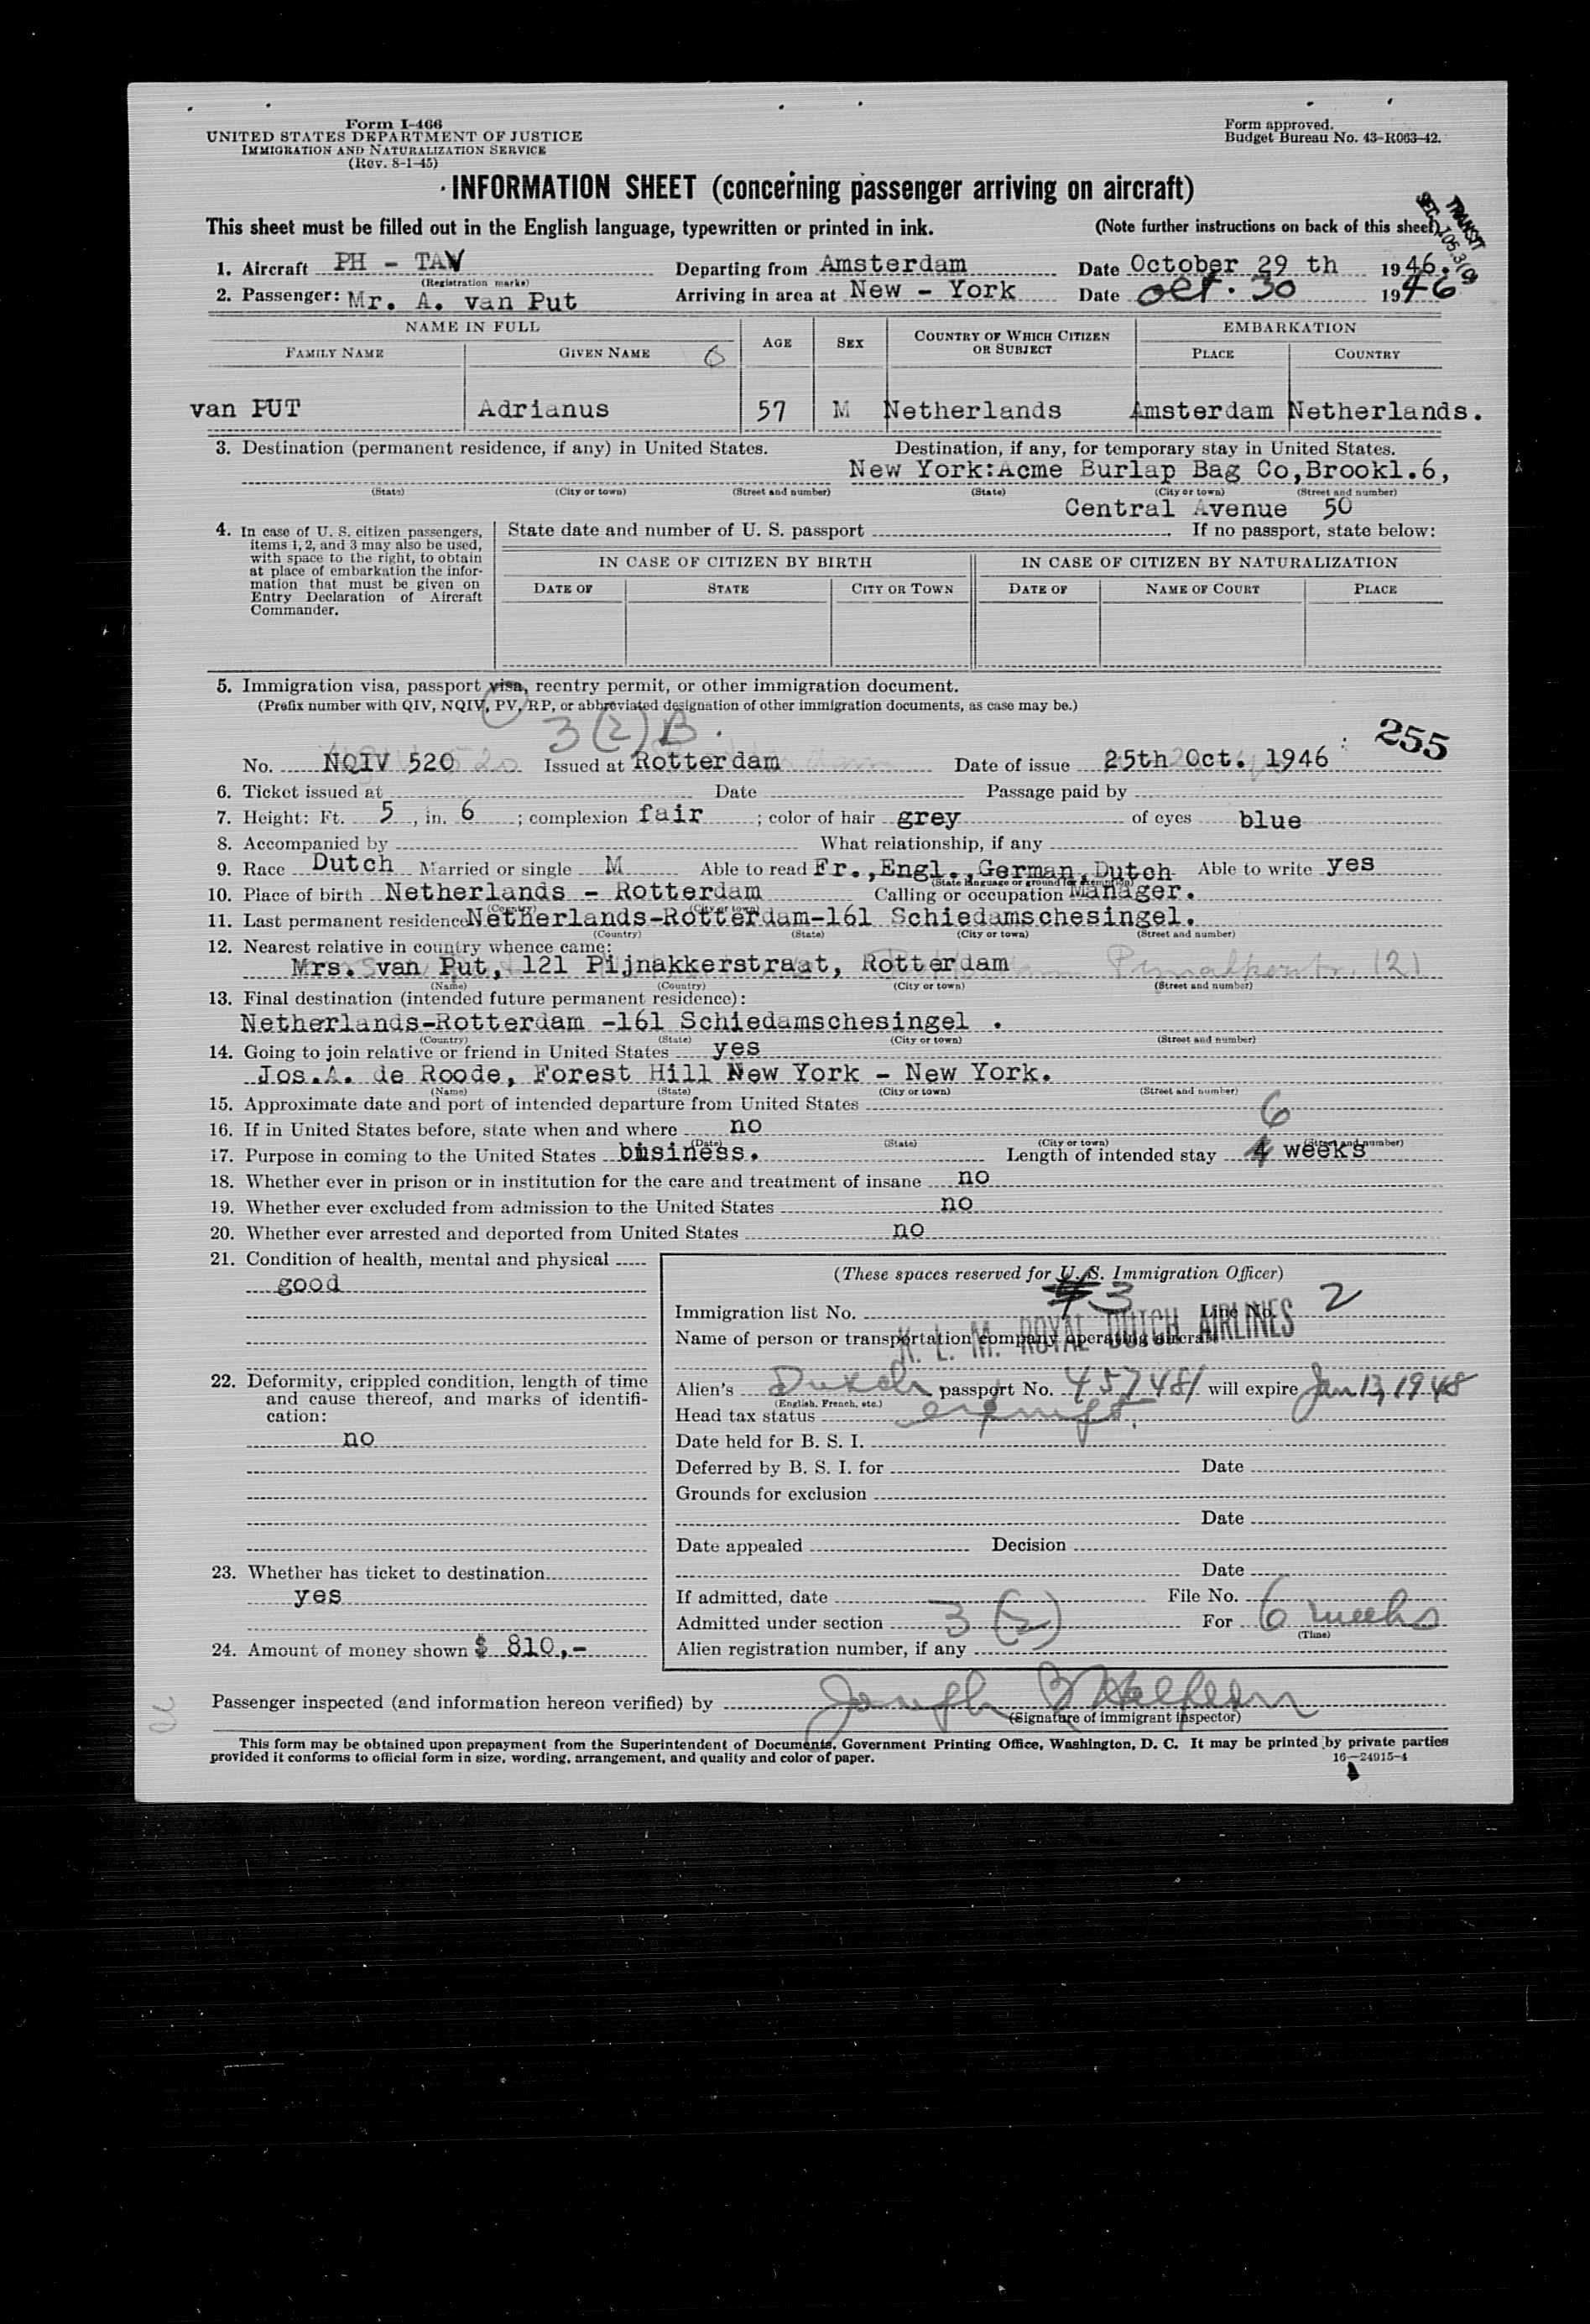 Form I-466
UNITED STATES DEPARTMENT OF JUSTICE
IMMIGRATION AND NATURALIZATION SERVICE
(Rev. 8-1-45)
Form approved.
Budget Bureau No. 43-R063-42.
INFORMATION SHEET (concerning passenger arriving on aircraft)
This sheet must be filled out in the English language, typewritten or printed in ink. (Note further instructions on back of this sheet)
TRANSIT
1. Aircraft PH - TAV Departing from Amsterdam Date October 29 th 1946.
(Registration marks)
2. Passenger: Mr. A. van Put Arriving in area at New - York Date Oct. 30 1946
NAME IN FULL AGE SEX COUNTRY OF WHICH CITIZEN OR SUBJECT EMBARKATION
FAMILY NAME GIVEN NAME 6 PLACE COUNTRY
van PUT Adrianus 57 M Netherlands Amsterdam Netherlands.
3. Destination (permanent residence, if any) in United States. Destination, if any, for temporary stay in United States.
New York:Acme Burlap Bag Co,Brookl.6,
(State) (City or town) (Street and number) (State) (City or town) (Street and number)
Central Avenue 50
4. In case of U. S. citizen passengers, items 1, 2, and 3 may also be used, with space to the right, to obtain at place of embarkation the information that must be given on Entry Declaration of Aircraft Commander.
State date and number of U. S. passport . If no passport, state below:
IN CASE OF CITIZEN BY BIRTH IN CASE OF CITIZEN BY NATURALIZATION
DATE OF STATE CITY OR TOWN DATE OF NAME OF COURT PLACE
5. Immigration visa, passport visa, reentry permit, or other immigration document.
(Prefix number with QIV, NQIV, PV, RP, or abbreviated designation of other immigration documents, as case may be.)
3 (2) B. 255
No. NQIV 520 Issued at Rotterdam Date of issue 25th Oct. 1946
6. Ticket issued at Date Passage paid by
7. Height: Ft. 5, in. 6; complexion fair; color of hair grey of eyes blue
8. Accompanied by What relationship, if any
9. Race Dutch Married or single M Able to read Fr.,Engl.,German,Dutch Able to write yes
(State language or ground for exemption)
10. Place of birth Netherlands - Rotterdam Calling or occupation Manager.
(Country) (City or town)
11. Last permanent residence Netherlands-Rotterdam-161 Schiedamschesingel.
(Country) (State) (City or town) (Street and number)
12. Nearest relative in country whence came:
Mrs. van Put, 121 Pijnakkerstraat, Rotterdam
(Name) (Country) (City or town) (Street and number)
13. Final destination (intended future permanent residence):
Netherlands-Rotterdam -161 Schiedamschesingel .
(Country) (State) (City or town) (Street and number)
14. Going to join relative or friend in United States yes
Jos.A. de Roode, Forest Hill New York - New York.
(Name) (State) (City or town) (Street and number)
15. Approximate date and port of intended departure from United States
16. If in United States before, state when and where no
(Date) (State) (City or town) (Street and number)
6
17. Purpose in coming to the United States business. Length of intended stay 4 weeks
18. Whether ever in prison or in institution for the care and treatment of insane no
19. Whether ever excluded from admission to the United States no
20. Whether ever arrested and deported from United States no
21. Condition of health, mental and physical
good
22. Deformity, crippled condition, length of time and cause thereof, and marks of identification:
no
23. Whether has ticket to destination
yes
24. Amount of money shown $ 810,-
(These spaces reserved for U. S. Immigration Officer)
Immigration list No. 3 Line No. 2
Name of person or transportation company operating aircraft
K. L. M. ROYAL DUTCH AIRLINES
Alien's Dutch passport No. 457481 will expire Jan 13, 1948
(English, French, etc.)
Head tax status exempt.
Date held for B. S. I.
Deferred by B. S. I. for Date
Grounds for exclusion
Date
Date appealed Decision
Date
If admitted, date File No.
Admitted under section 3 (2) For 6 weeks
(Time)
Alien registration number, if any
Passenger inspected (and information hereon verified) by Joseph
(Signature of immigrant inspector)
This form may be obtained upon prepayment from the Superintendent of Documents, Government Printing Office, Washington, D. C. It may be printed by private parties
provided it conforms to official form in size, wording, arrangement, and quality and color of paper.
16—24915-4